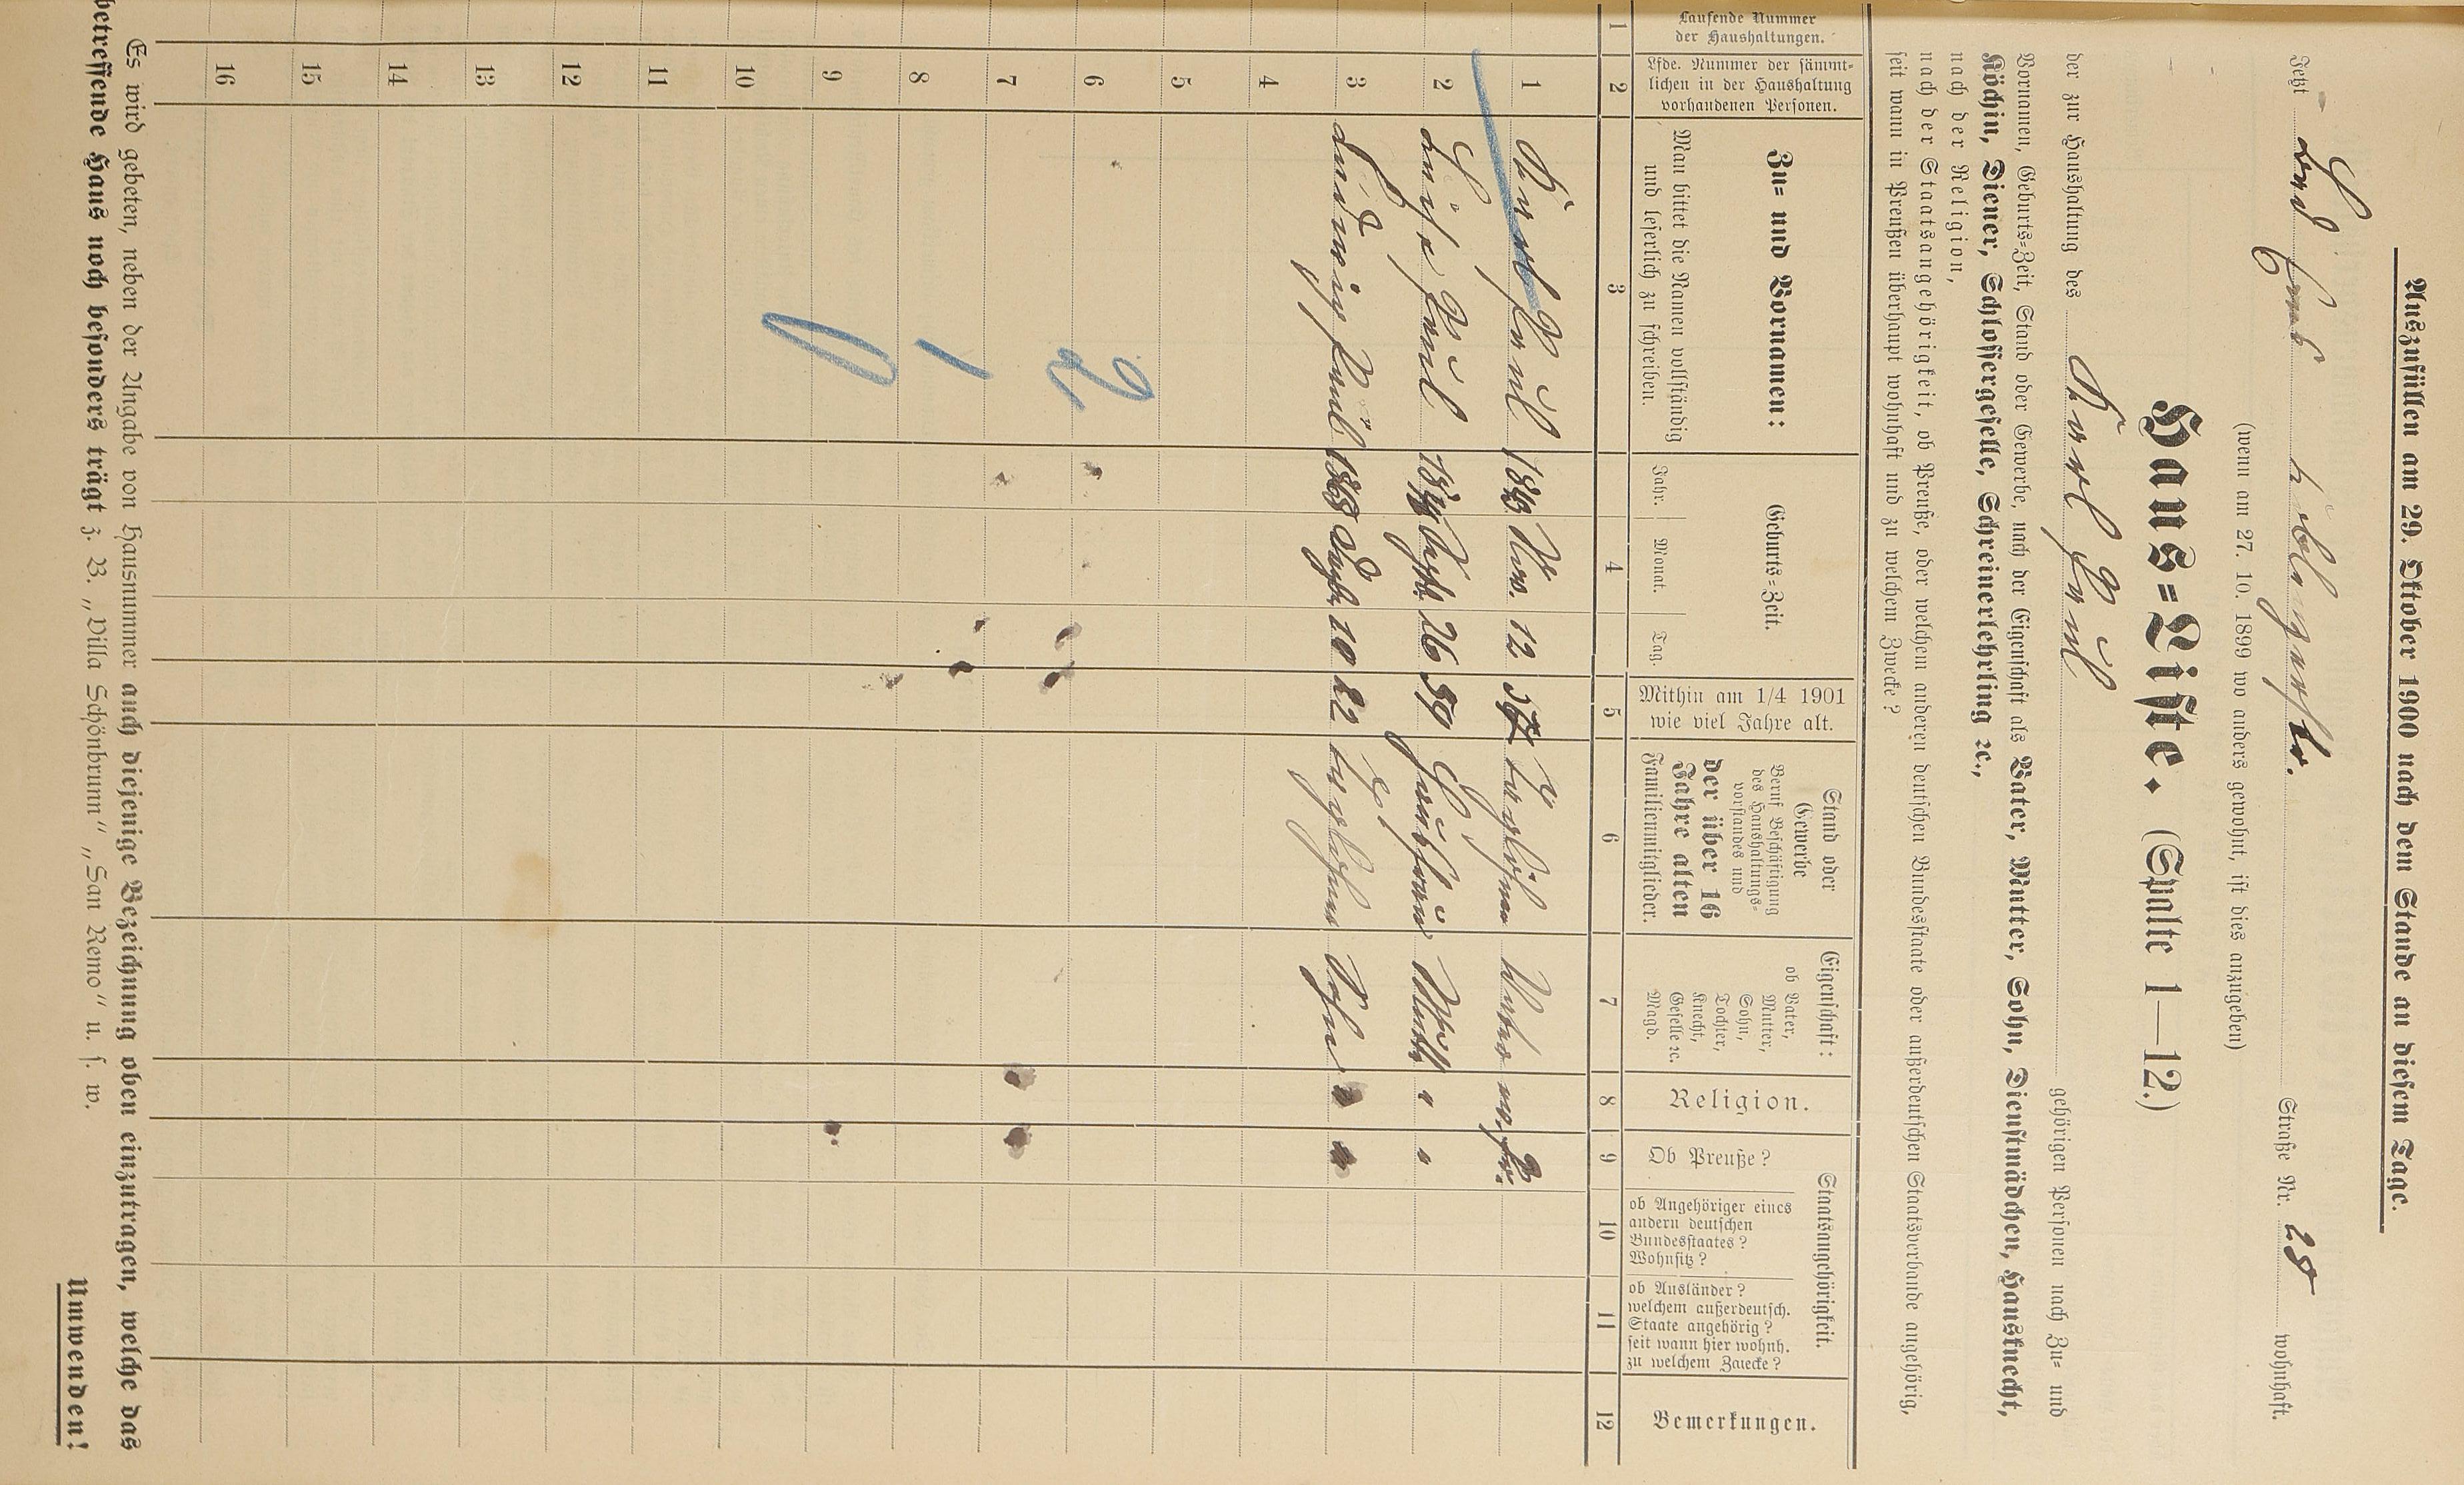 Auszufüllen am 29. Oktober 1900 nach dem Stande an diesem Tage.
Jetzt Straße Nr. 28 wohnhaft.
(wenn am 27. 10. 1899 wo anders gewohnt, ist dies anzugeben)
Haus=Liste. (Spalte 1—12.)
der zur Haushaltung des Karl gehörigen Personen nach Zu= und
Vornamen, Geburts=Zeit, Stand oder Gewerbe, nach der Eigenschaft als Vater, Mutter, Sohn, Dienstmädchen, Hausknecht,
Köchin, Diener, Schlossergeselle, Schreinerlehrling ꝛc.,
nach der Religion,
nach der Staatsangehörigkeit, ob Preuße, oder welchem anderen deutschen Bundesstaate oder außerdeutschen Staatsverbande angehörig,
seit wann in Preußen überhaupt wohnhaft und zu welchem Zwecke?
Laufende Nummer
der Haushaltungen.
Lfde. Nummer der sämmt=
lichen in der Haushaltung
vorhandenen Personen.
Zu= und Vornamen:
Man bittet die Namen vollständig
und leserlich zu schreiben.
Geburts=Zeit.
Jahr. Monat. Tag.
Mithin am 1/4 1901
wie viel Jahre alt.
Stand oder
Gewerbe
Beruf Beschäftigung
des Haushaltungs=
vorstandes und
der über 16
Jahre alten
Familienmitglieder.
Eigenschaft:
ob Vater,
Mutter,
Sohn,
Tochter,
Knecht,
Geselle ꝛc.
Magd.
Religion.
Staatsangehörigkeit.
Ob Preuße?
ob Angehöriger eines
andern deutschen
Bundesstaates?
Wohnsitz?
ob Ausländer?
welchem außerdeutsch.
Staate angehörig?
seit wann hier wohnh.
zu welchem Zwecke?
Bemerkungen.
1 2 3 4 5 6 7 8 9 10 11 12
1 Karl Nov. 12 Taglöhner Vater ev. Pr.
2 Luise 26 59 Hausfrau Mutter " "
3 Ludwig 1868 Sept. 10 22 Taglöhner Sohn " "
4
5
6 2
7
8 1
9 0
10
11
12
13
14
15
16
Es wird gebeten, neben der Angabe von Hausnummer auch diejenige Bezeichnung oben einzutragen, welche das
betreffende Haus noch besonders trägt z. B. „Villa Schönbrunn" „San Remo" u. s. w.
Umwenden!